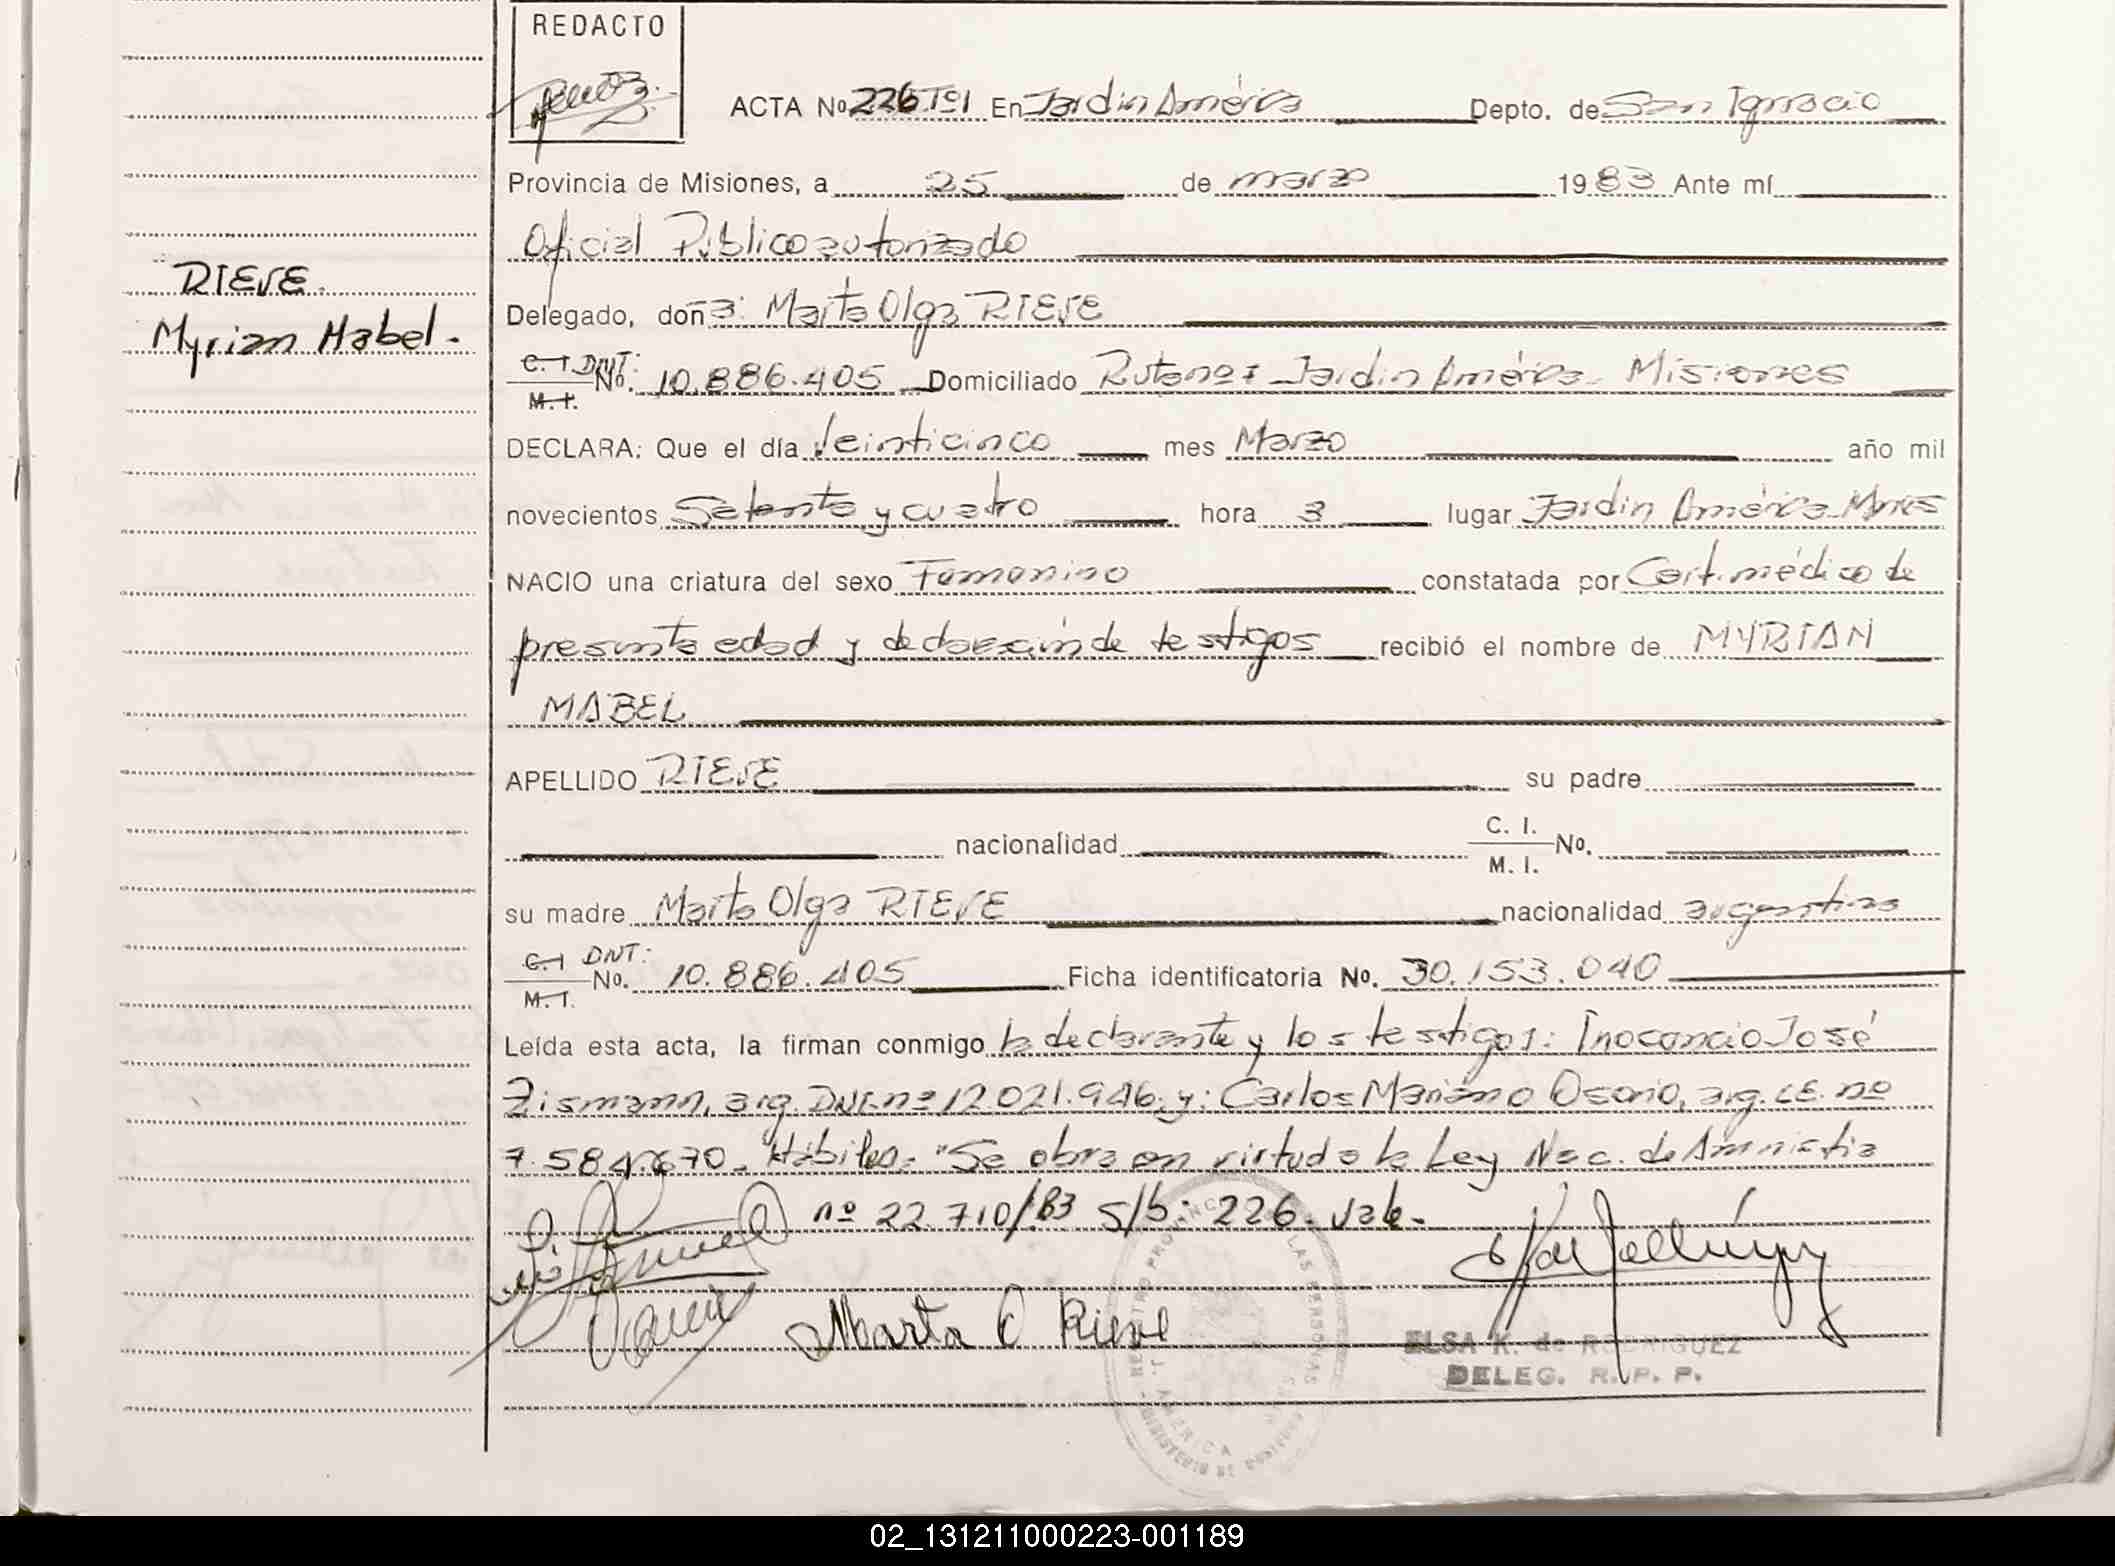 REDACTO
ACTA Nº 226 Tº1 En Jardín América Depto. de San Ignacio
Provincia de Misiones, a 25 de marzo 1983 Ante mí
Oficial Público autorizado
RIEVE.
Myrian Mabel.-
Delegado, doña: Marta Olga RIEVE
C. I. DNI: M. I. No. 10.886.405 Domiciliado Ruta nº Jardín América - Misiones
DECLARA: Que el día Veinticinco mes Marzo año mil
novecientos Setenta y cuatro hora 3 lugar Jardín América Mnes
NACIO una criatura del sexo Femenino constatada por Cert. médico de
presunta edad y declaración de testigos recibió el nombre de MYRIAN
MABEL
APELLIDO RIEVE su padre
nacionalidad C. I. M. I. No.
su madre Marta Olga RIEVE nacionalidad argentina
C. I. DNI: M. I. No. 10.886.405 Ficha identificatoria No. 30.153.040
Leída esta acta, la firman conmigo la declarante y los testigos: Inocencio José
Zismann, arg. DNI. nº 12.021.946. y: Carlos Mariano Osorio, arg. LE. nº
7.584.670. Hábiles. "Se obra en virtud a la Ley Nac. de Amnistia
nº 22.710/83 S/b: 226. Vale.-
Marta O Rieve
ELSA K. de RODRIGUEZ
DELEG. R. P. P.
02_131211000223-001189